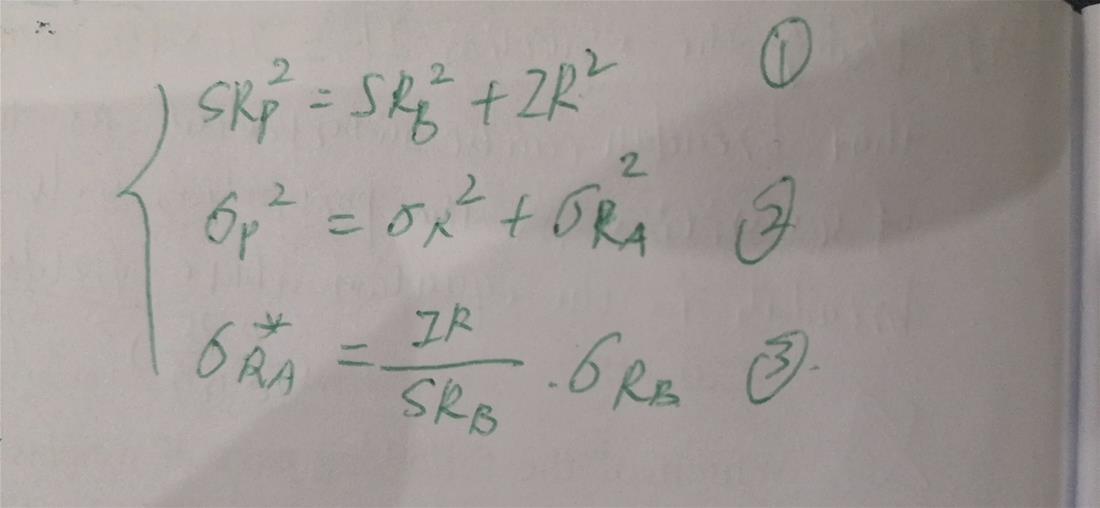 SR_P² = SR_B² + IR² ①
σ_P² = σ_R² + σ_{R_A}² ②
σ_{R_A}* = IR / SR_B · σ_{R_B} ③.